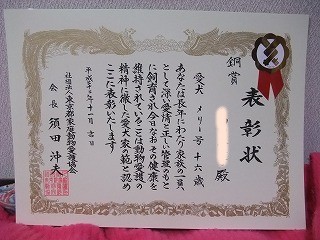 表彰状
銅賞
愛犬 メリー号 十六歳
殿
あなたは長年にわたり家族の一員
として深い愛情と正しい管理のもと
に飼育され今日なおその健康を
維持されていることは動物愛護の
精神に徹した愛犬家の範と認め
ここに表彰いたします
平成 年十一月 吉日
社団法人東京都家庭動物愛護協会
会長 須田沖夫